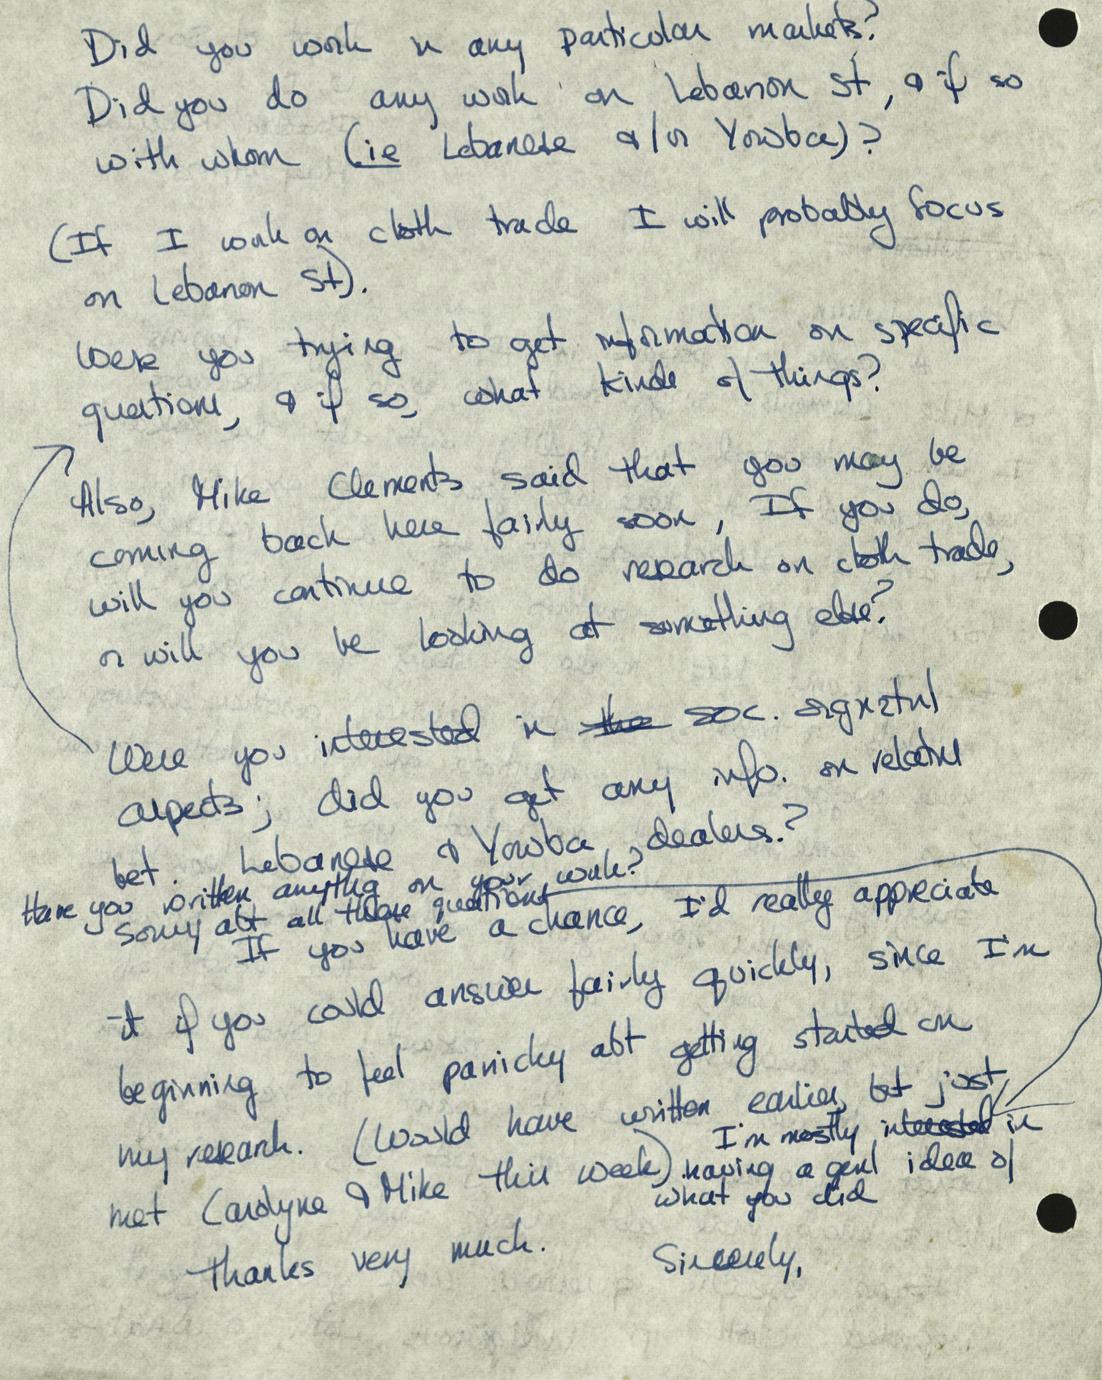 Did you work in any particular markets?
Did you do any work on Lebanon St, & if so
with whom (ie Lebanese &/or Yoruba)?
(If I work on cloth trade I will probably focus
on Lebanon St).
Were you trying to get information on specific
questions, & if so, what kinds of things?
Also, Mike Clements said that you may be
coming back here fairly soon, If you do,
will you continue to do research on cloth trade,
or will you be looking at something else?
Were you interested in the soc. organiztnl
aspects; did you get any info. on relatns
bet. Lebanese & Yoruba dealers.?
Have you written anything on your work?
Sorry abt all these questions
If you have a chance, I'd really appreciate
it if you could answer fairly quickly, since I'm
beginning to feel panicky abt getting started on
my research. (Would have written earlier, but just
I'm mostly interested in
met Carolyne & Mike this week). having a genl idea of
what you did
Thanks very much. Sincerely,